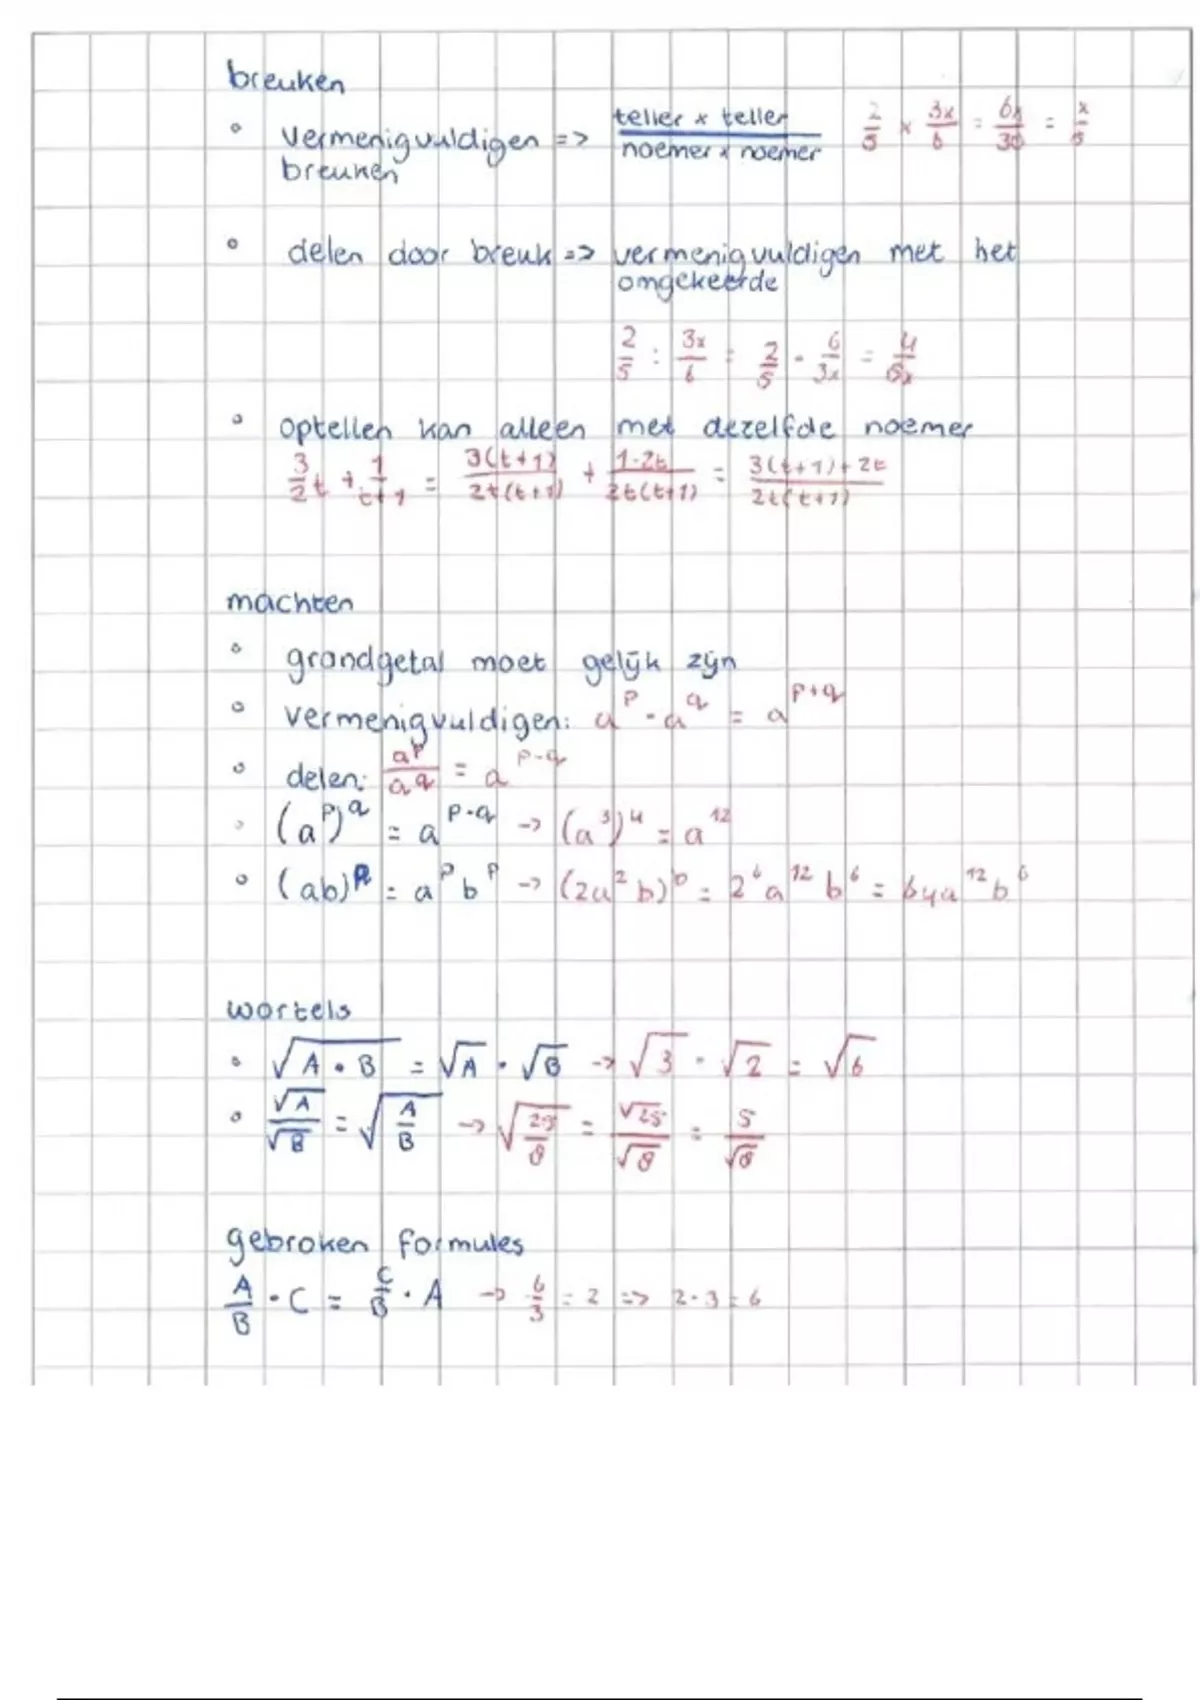 breuken
° vermenigvuldigen => teller × teller / noemer × noemer 2/5 × 3x/6 = 6x/30 = x/5
breuken
° delen door breuk => vermenigvuldigen met het
omgekeerde
2/5 : 3x/6 = 2/5 · 6/3x = 4/5x
° optellen kan alleen met dezelfde noemer
3/2t + 1/t+1 = 3(t+1)/2t(t+1) + 1·2t/2t(t+1) = 3(t+1)+2t/2t(t+1)
machten
° grondgetal moet gelijk zijn
° vermenigvuldigen: a^p · a^q = a^(p+q)
° delen: a^p/a^q = a^(p-q)
° (a^p)^q = a^(p·q) -> (a^3)^4 = a^12
° (ab)^p = a^p b^p -> (2a^2 b)^6 = 2^6 a^12 b^6 = 64a^12 b^6
wortels
° √(A · B) = √A · √B -> √3 · √2 = √6
° √A/√B = √(A/B) -> √(25/8) = √25/√8 = 5/√8
gebroken formules
A/B · C = C/B · A -> 6/3 = 2 => 2 · 3 = 6